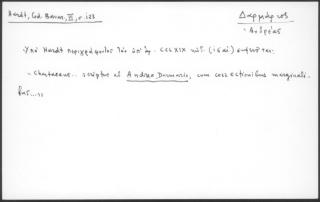 Hardt, Cod. Bavar., III, σ. 123
Δαρμάριος
Ἀνδρέας
- Ὑπὸ Hardt περιγράφεται ὑπ' ἀρ. CCLXIX κῶδ. (16 αἰ.)
- Chartaceus... scriptus ab Andrea Darmario, cum correctionibus marginali-
bus...